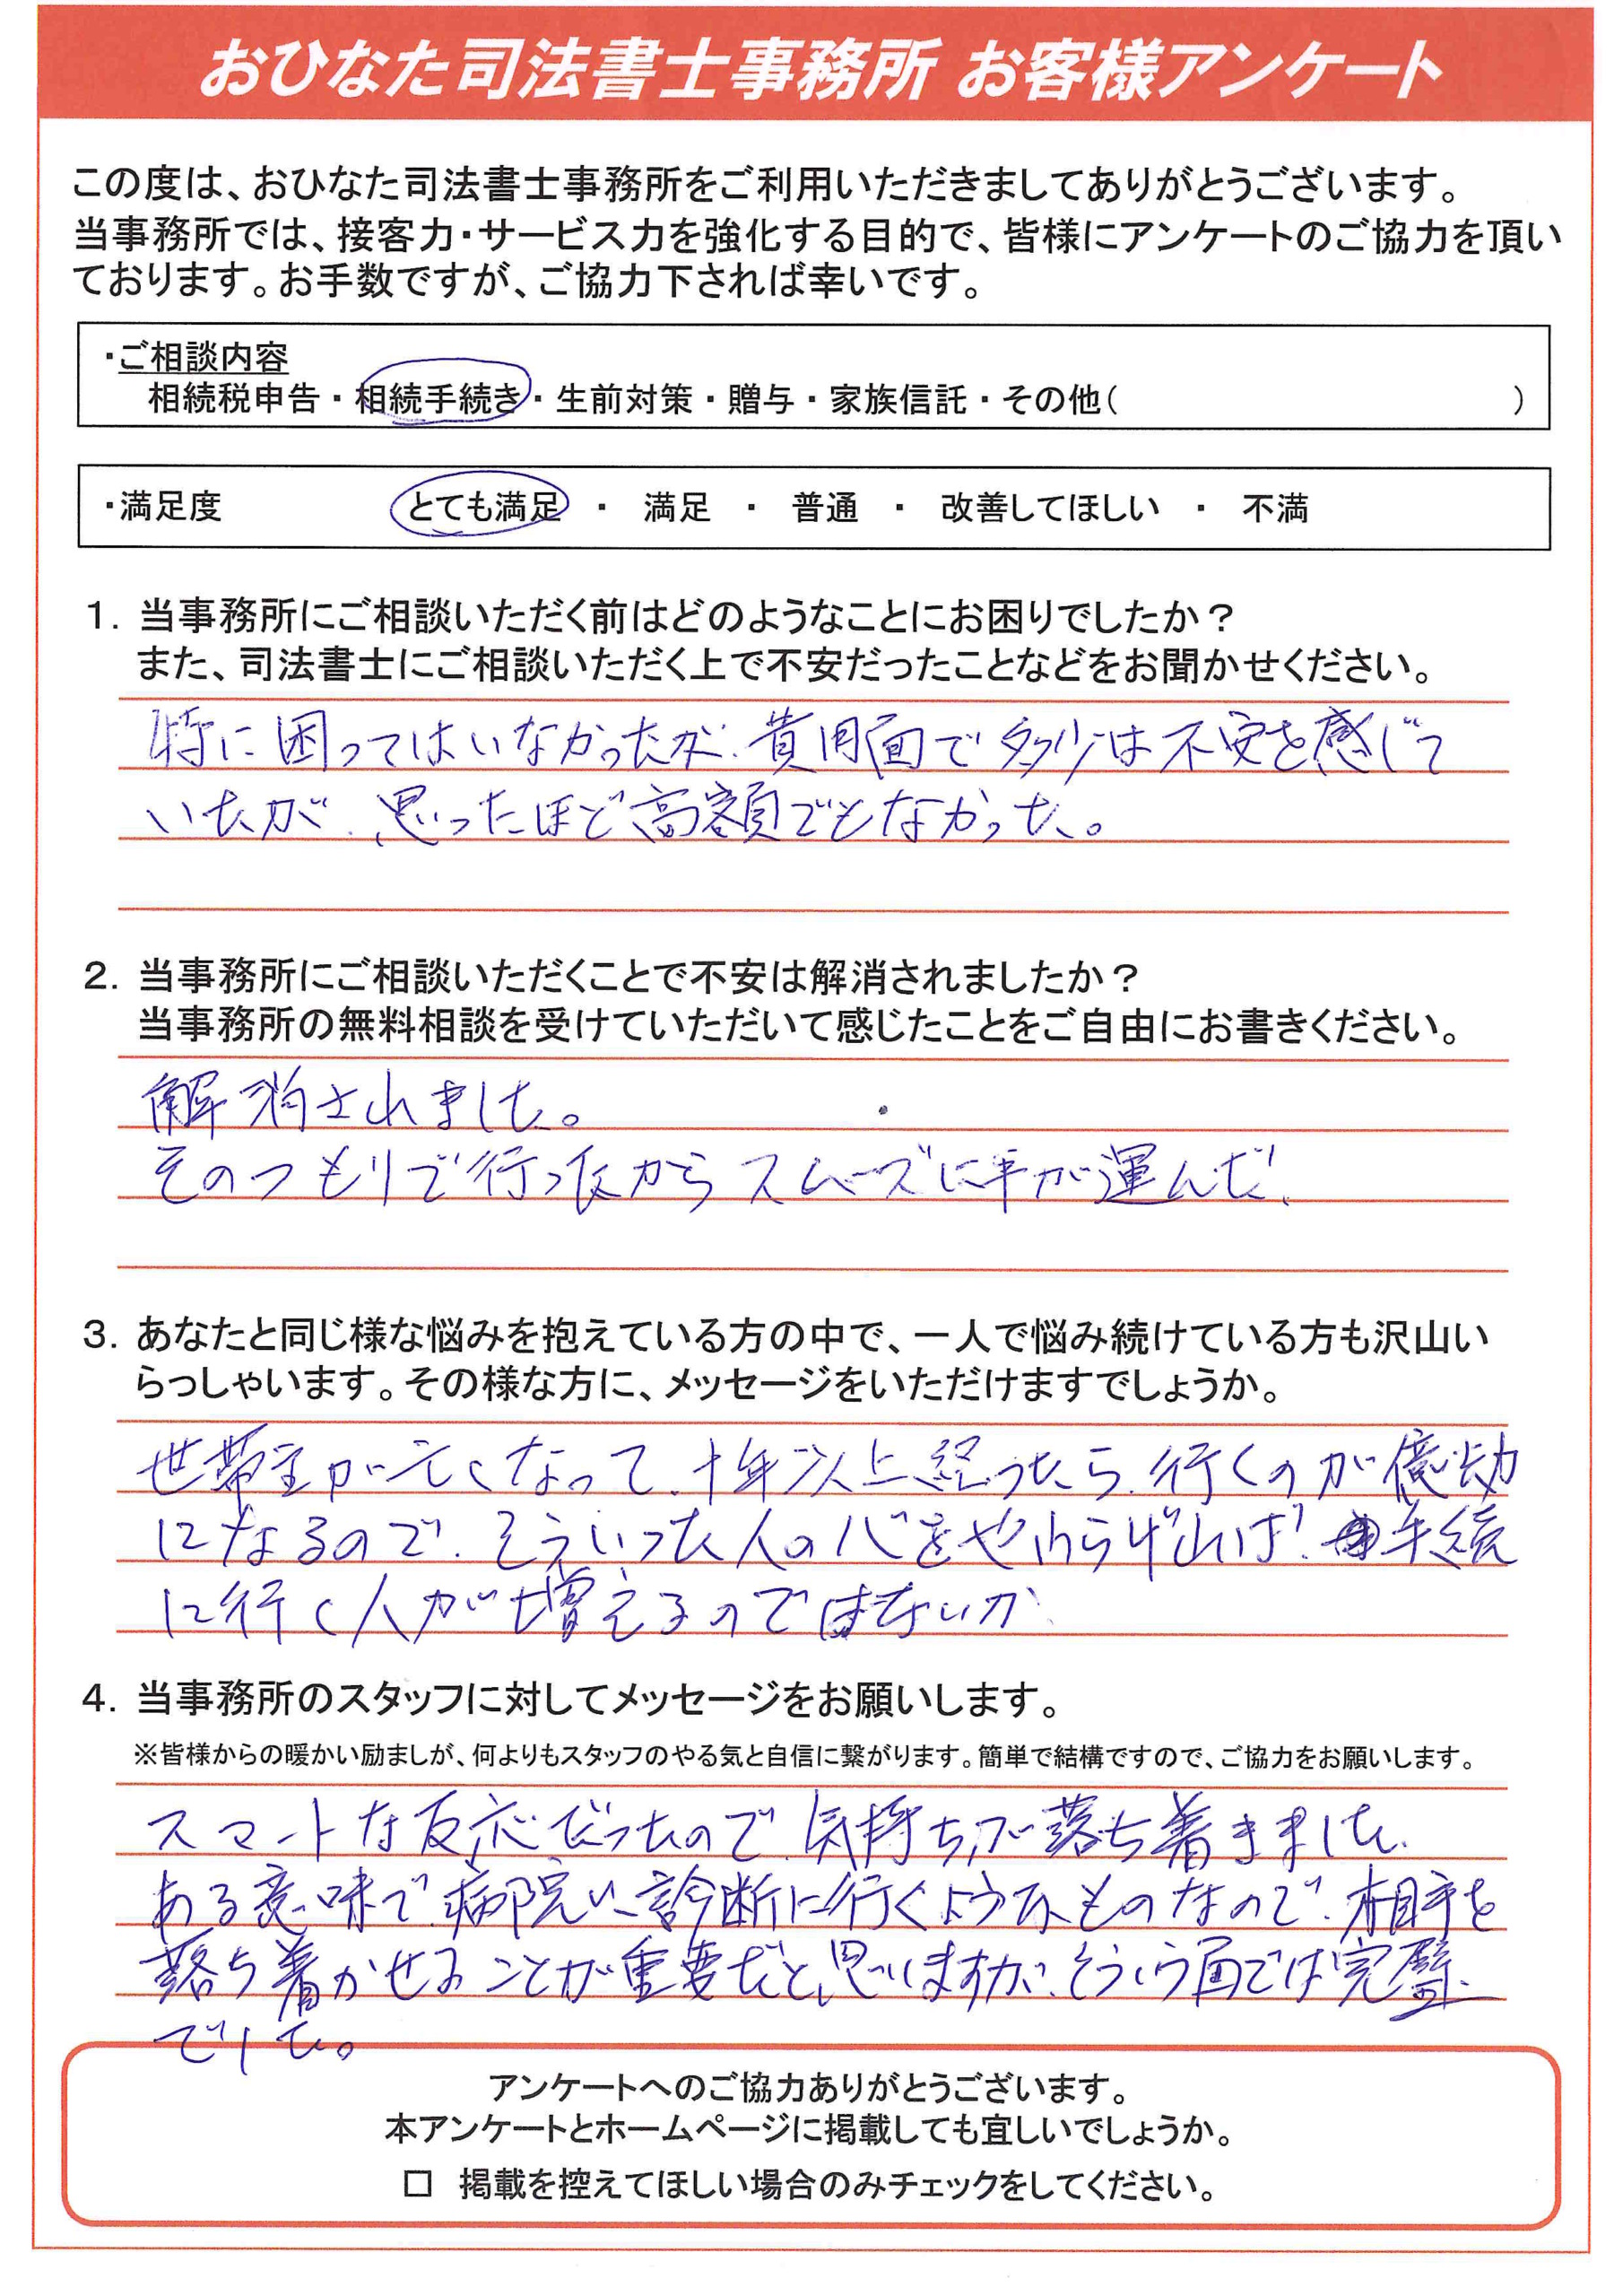 おひなた司法書士事務所 お客様アンケート
この度は、おひなた司法書士事務所をご利用いただきましてありがとうございます。
当事務所では、接客力・サービス力を強化する目的で、皆様にアンケートのご協力を頂い
ております。お手数ですが、ご協力下されば幸いです。
・ご相談内容
相続税申告・相続手続き・生前対策・贈与・家族信託・その他(　　　)
・満足度　とても満足 ・ 満足 ・ 普通 ・ 改善してほしい ・ 不満
1. 当事務所にご相談いただく前はどのようなことにお困りでしたか？
また、司法書士にご相談いただく上で不安だったことなどをお聞かせください。
特に困ってはいなかったが、費用面で多少は不安を感じて
いたが、思ったほど高額でもなかった。
2. 当事務所にご相談いただくことで不安は解消されましたか？
当事務所の無料相談を受けていただいて感じたことをご自由にお書きください。
解消されました。
そのつもりで行ったからスムーズに事が運んだ、
3. あなたと同じ様な悩みを抱えている方の中で、一人で悩み続けている方も沢山い
らっしゃいます。その様な方に、メッセージをいただけますでしょうか。
世帯主が亡くなって、十年以上経ったら、行くのが億劫
になるので、そういった人の心をやわらげれば、手続
に行く人が増えるのではないか、
4. 当事務所のスタッフに対してメッセージをお願いします。
※皆様からの暖かい励ましが、何よりもスタッフのやる気と自信に繋がります。簡単で結構ですので、ご協力をお願いします。
スマートな反応だったので、気持ちが落ち着きました、
ある意味で、病院に診断に行くようなものなので、相手を
落ち着かせることが重要だと思いますが、そういう面では完璧
でした。
アンケートへのご協力ありがとうございます。
本アンケートとホームページに掲載しても宜しいでしょうか。
□ 掲載を控えてほしい場合のみチェックをしてください。